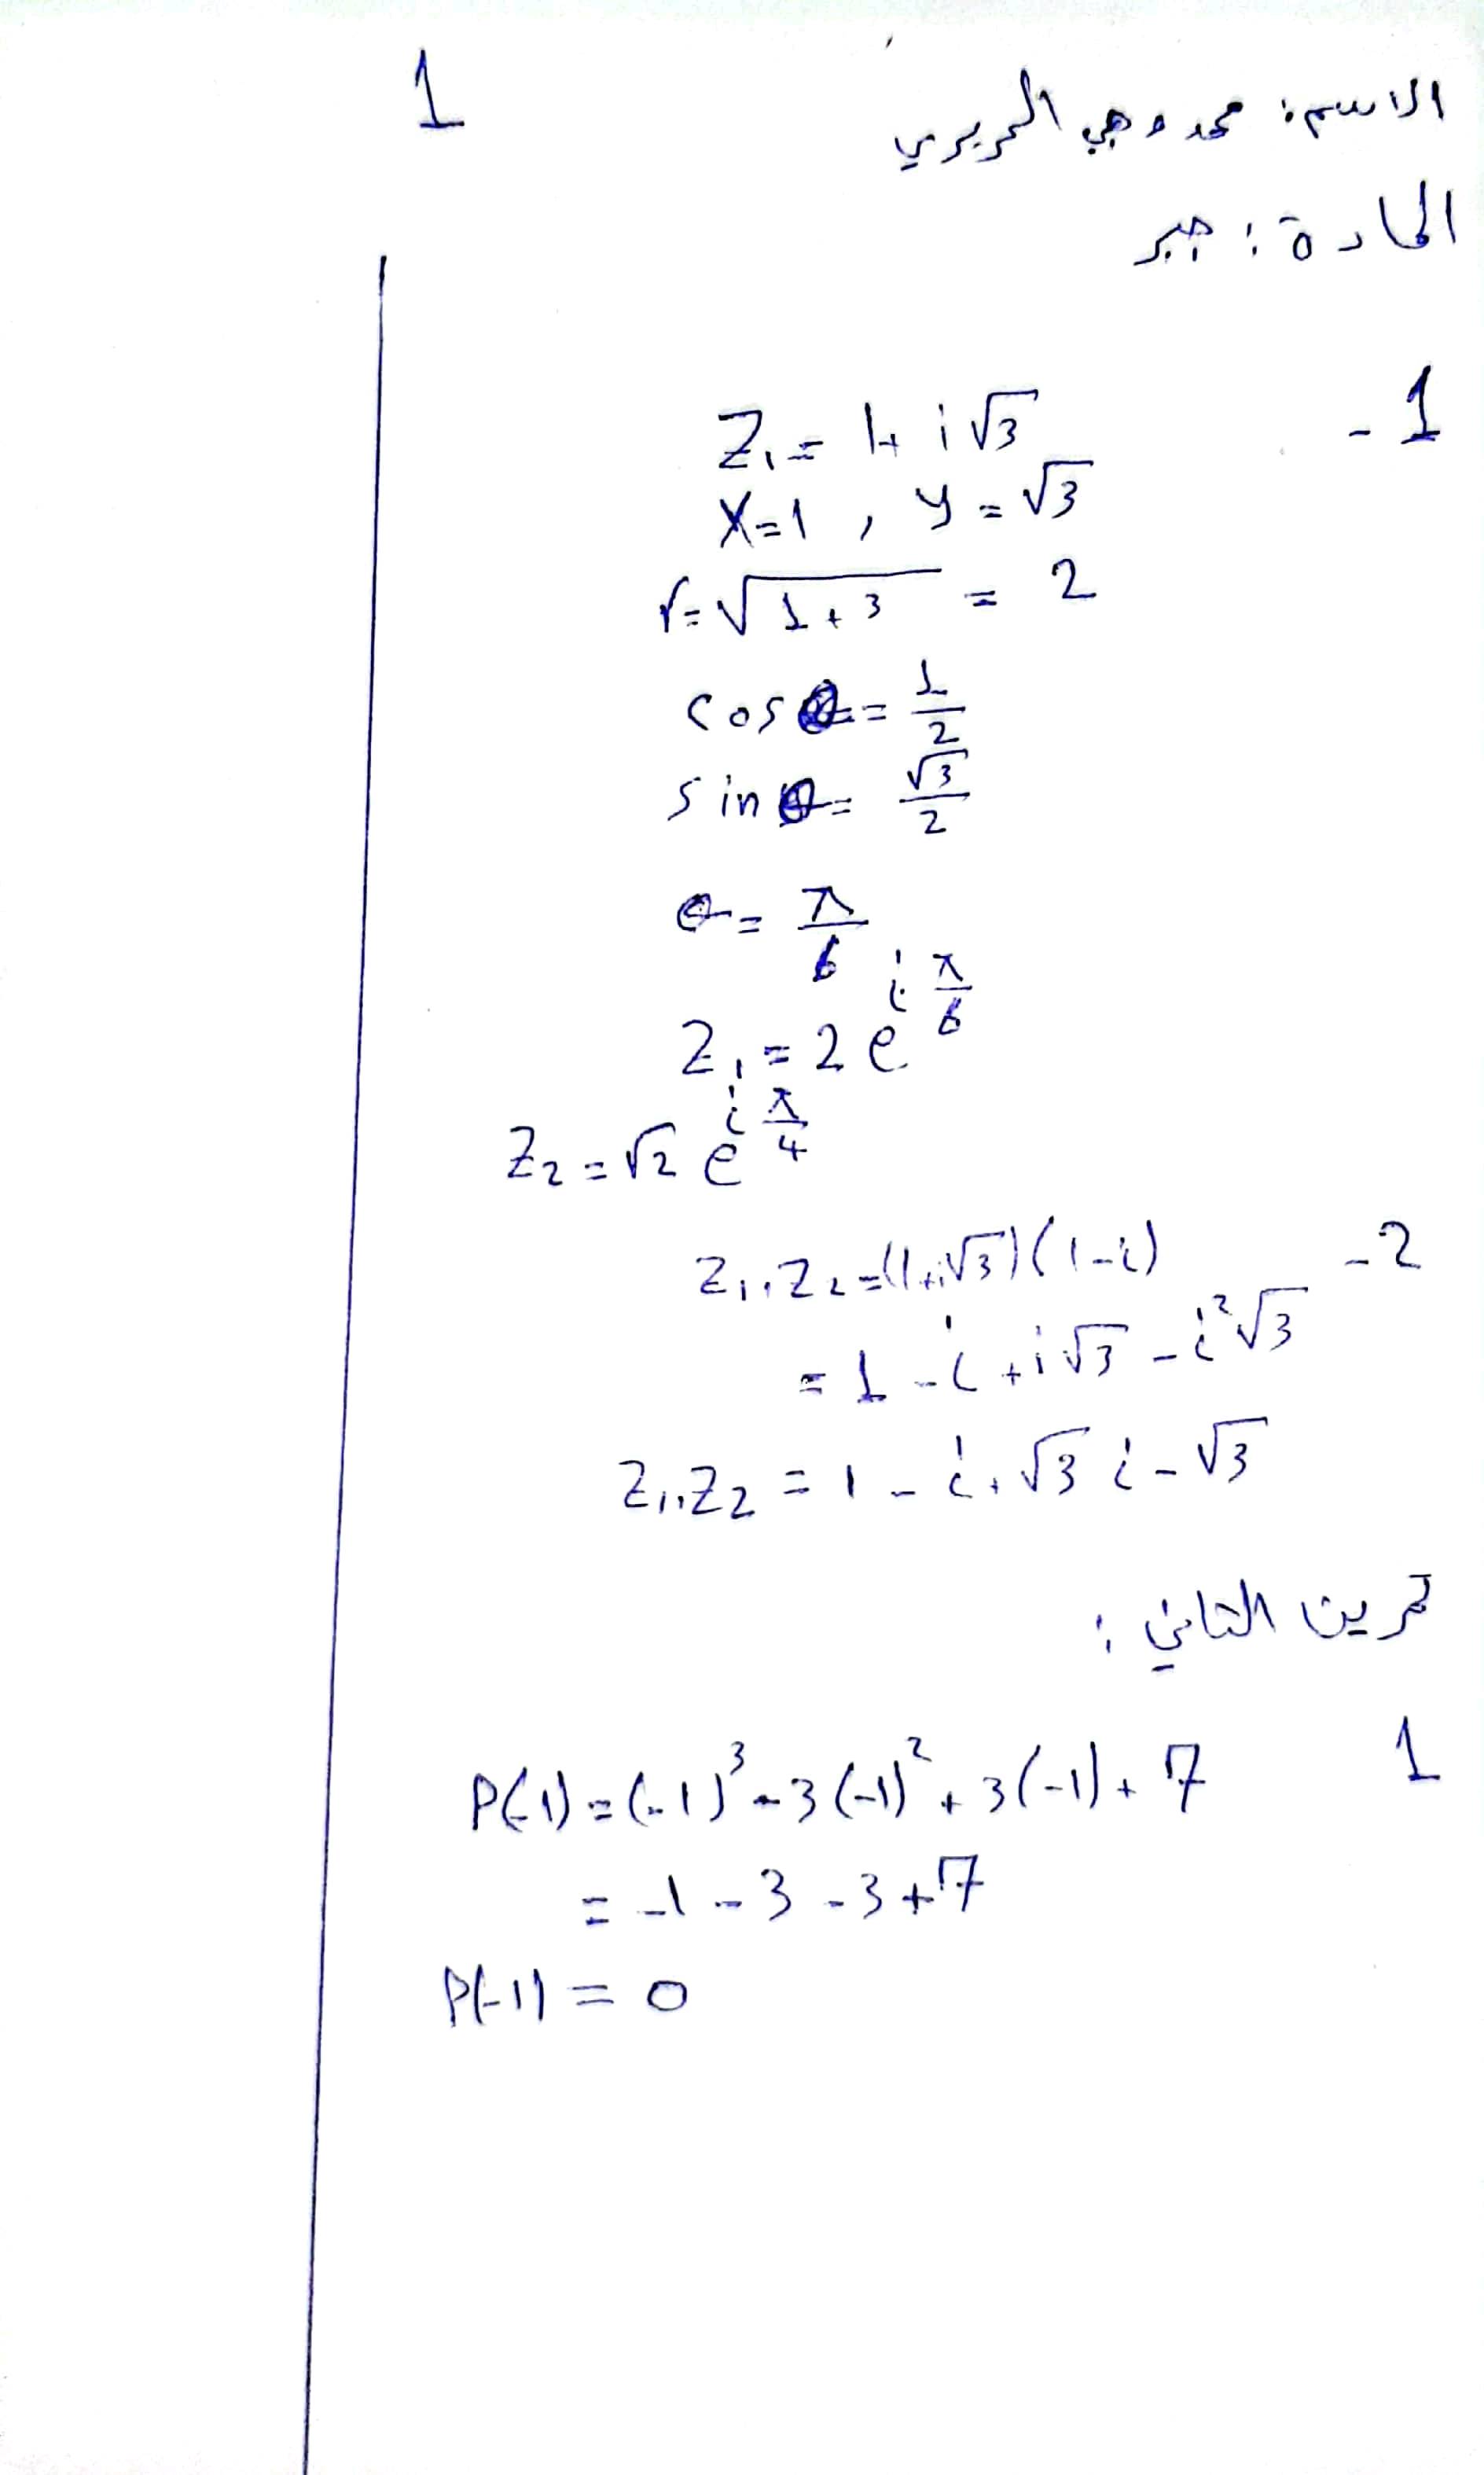 1
الاسم: محمد وجي الحريري
المادة: جبر
1 -
Z₁ = 1 + i√3
X = 1 , y = √3
r = √1+3 = 2
cos θ = 1/2
sin θ = √3/2
θ = π/6
Z₁ = 2 e^(i π/6)
Z₂ = √2 e^(i π/4)
2 -
Z₁.Z₂ = (1+i√3)(1-i)
= 1 - i + i√3 - i²√3
Z₁.Z₂ = 1 - i + √3 i - √3
تمرين الثاني :
1
P(-1) = (-1)³ - 3(-1)² + 3(-1) + 7
= -1 - 3 - 3 + 7
P(-1) = 0